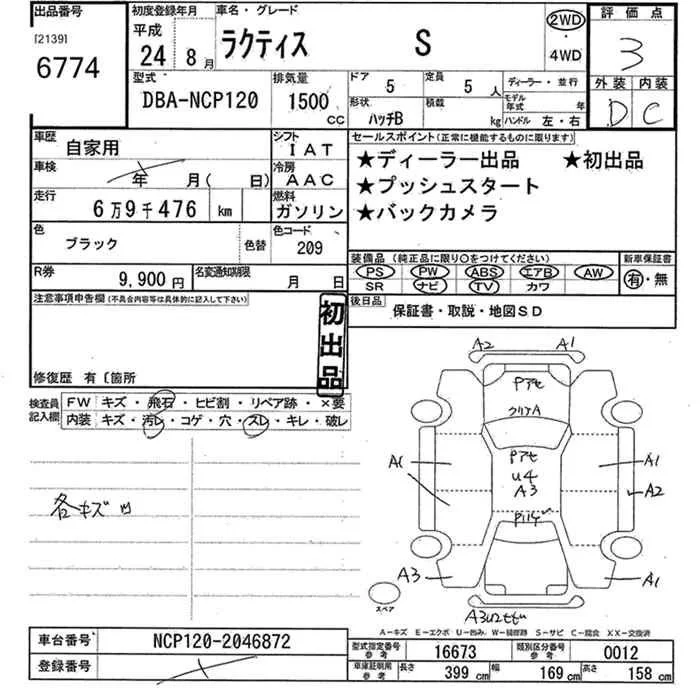 出品番号 初度登録年月 車名・グレード 2WD 評価点
[2139] 平成 ラクティス S ・ 3
6774 24年 8月 4WD
型式 排気量 ドア 定員 ディーラー・並行 外装 内装
DBA-NCP120 1500 CC 5 5人 モデル年式 年 D C
形状 ハッチB 積載 kg ハンドル 左・右
車歴 自家用 シフト IAT セールスポイント(正常に機能するものに限ります)
車検 年 月( 日) 冷房 AAC ★ディーラー出品 ★初出品
走行 6万9千476 km 燃料 ガソリン ★プッシュスタート
★バックカメラ
色 ブラック 色替 色コード 209
装備品(純正品に限り○をつけてください) 新車保証書
PS PW ABS エアB AW 有・無
SR ナビ TV カワ
R券 9,900円 名変通知期限 月 日
後日品 保証書・取説・地図SD
注意事項申告欄(不具合内容等は具体的に記入して下さい)
初出品
修復歴 有〔箇所
検査員記入欄 FW キズ・飛石・ヒビ割・リペア跡・×要
内装 キズ・汚レ・コゲ・穴・スレ・キレ・破レ
各キズ
A2 A1
Pアセ
クリアA
A1 Pアセ A1
U4 A2
A3
A3 A1
スペア
A3U2
A-キズ E-エクボ U-凹み W-補修跡 S-サビ C-腐食 XX-交換済
車台番号 NCP120-2046872
登録番号
型式指定番号 参考 16673 類別区分番号 参考 0012
車庫証明用 参考 長さ 399 cm 幅 169 cm 高さ 158 cm